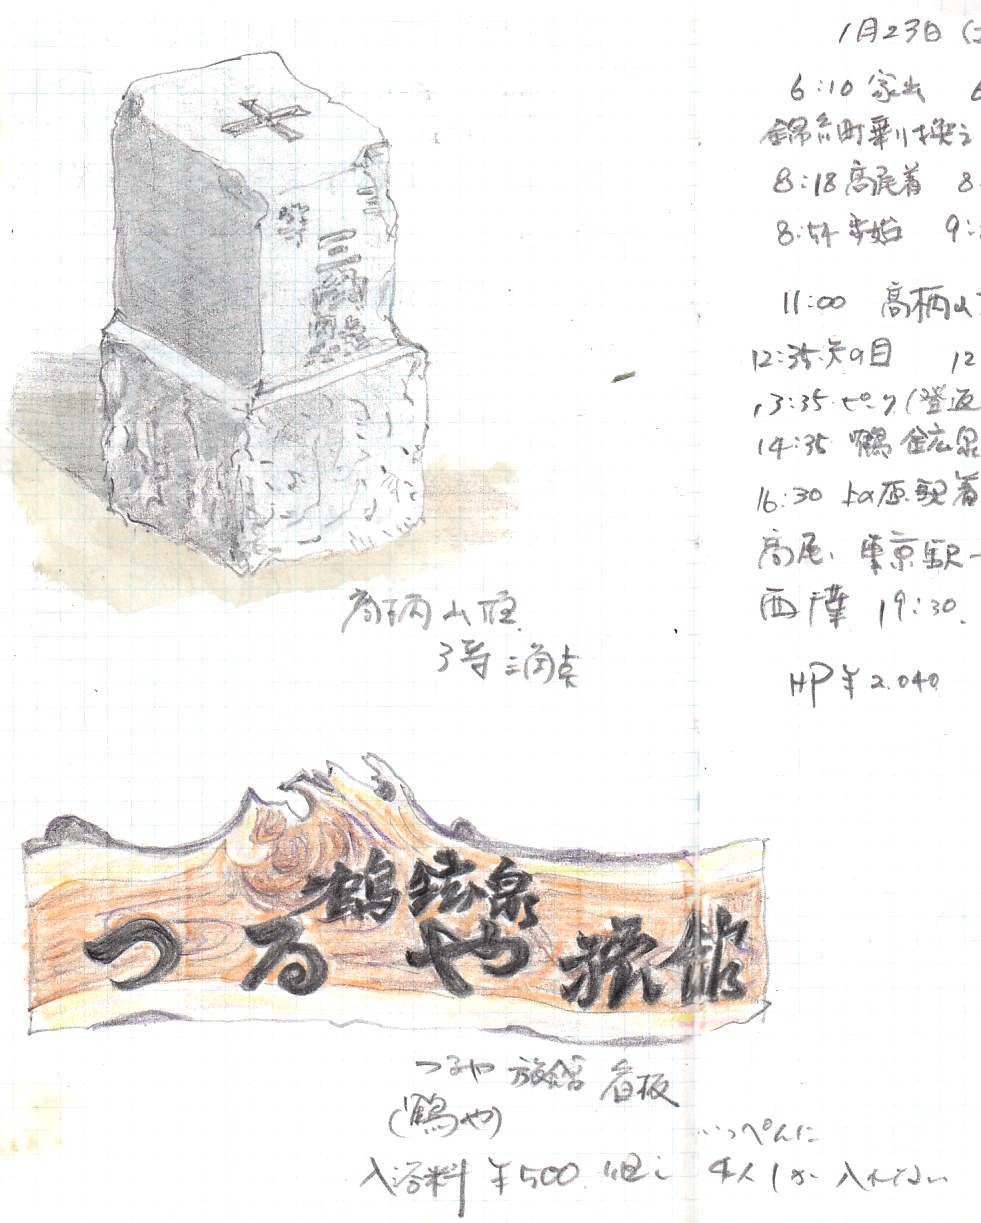 1月23日 (土
6:10 家出 6
錦糸町乗り換え
8:18 高尾着 8
8:54 歩始 9:
11:00 高柄山
12:35 矢の目 12
13:35 ピーク (登返
14:35 鶴鉱泉
16:30 上の原駅着
高尾. 東京駅
西千葉 19:30.
HP ¥2.040
三
等
三
角
点
高柄山頂
3等三角点
鶴鉱泉
つるや 旅館
つるや 旅館 看板
(鶴や)
いっぺんに
入浴料 ¥500 但し 4人しか 入れない